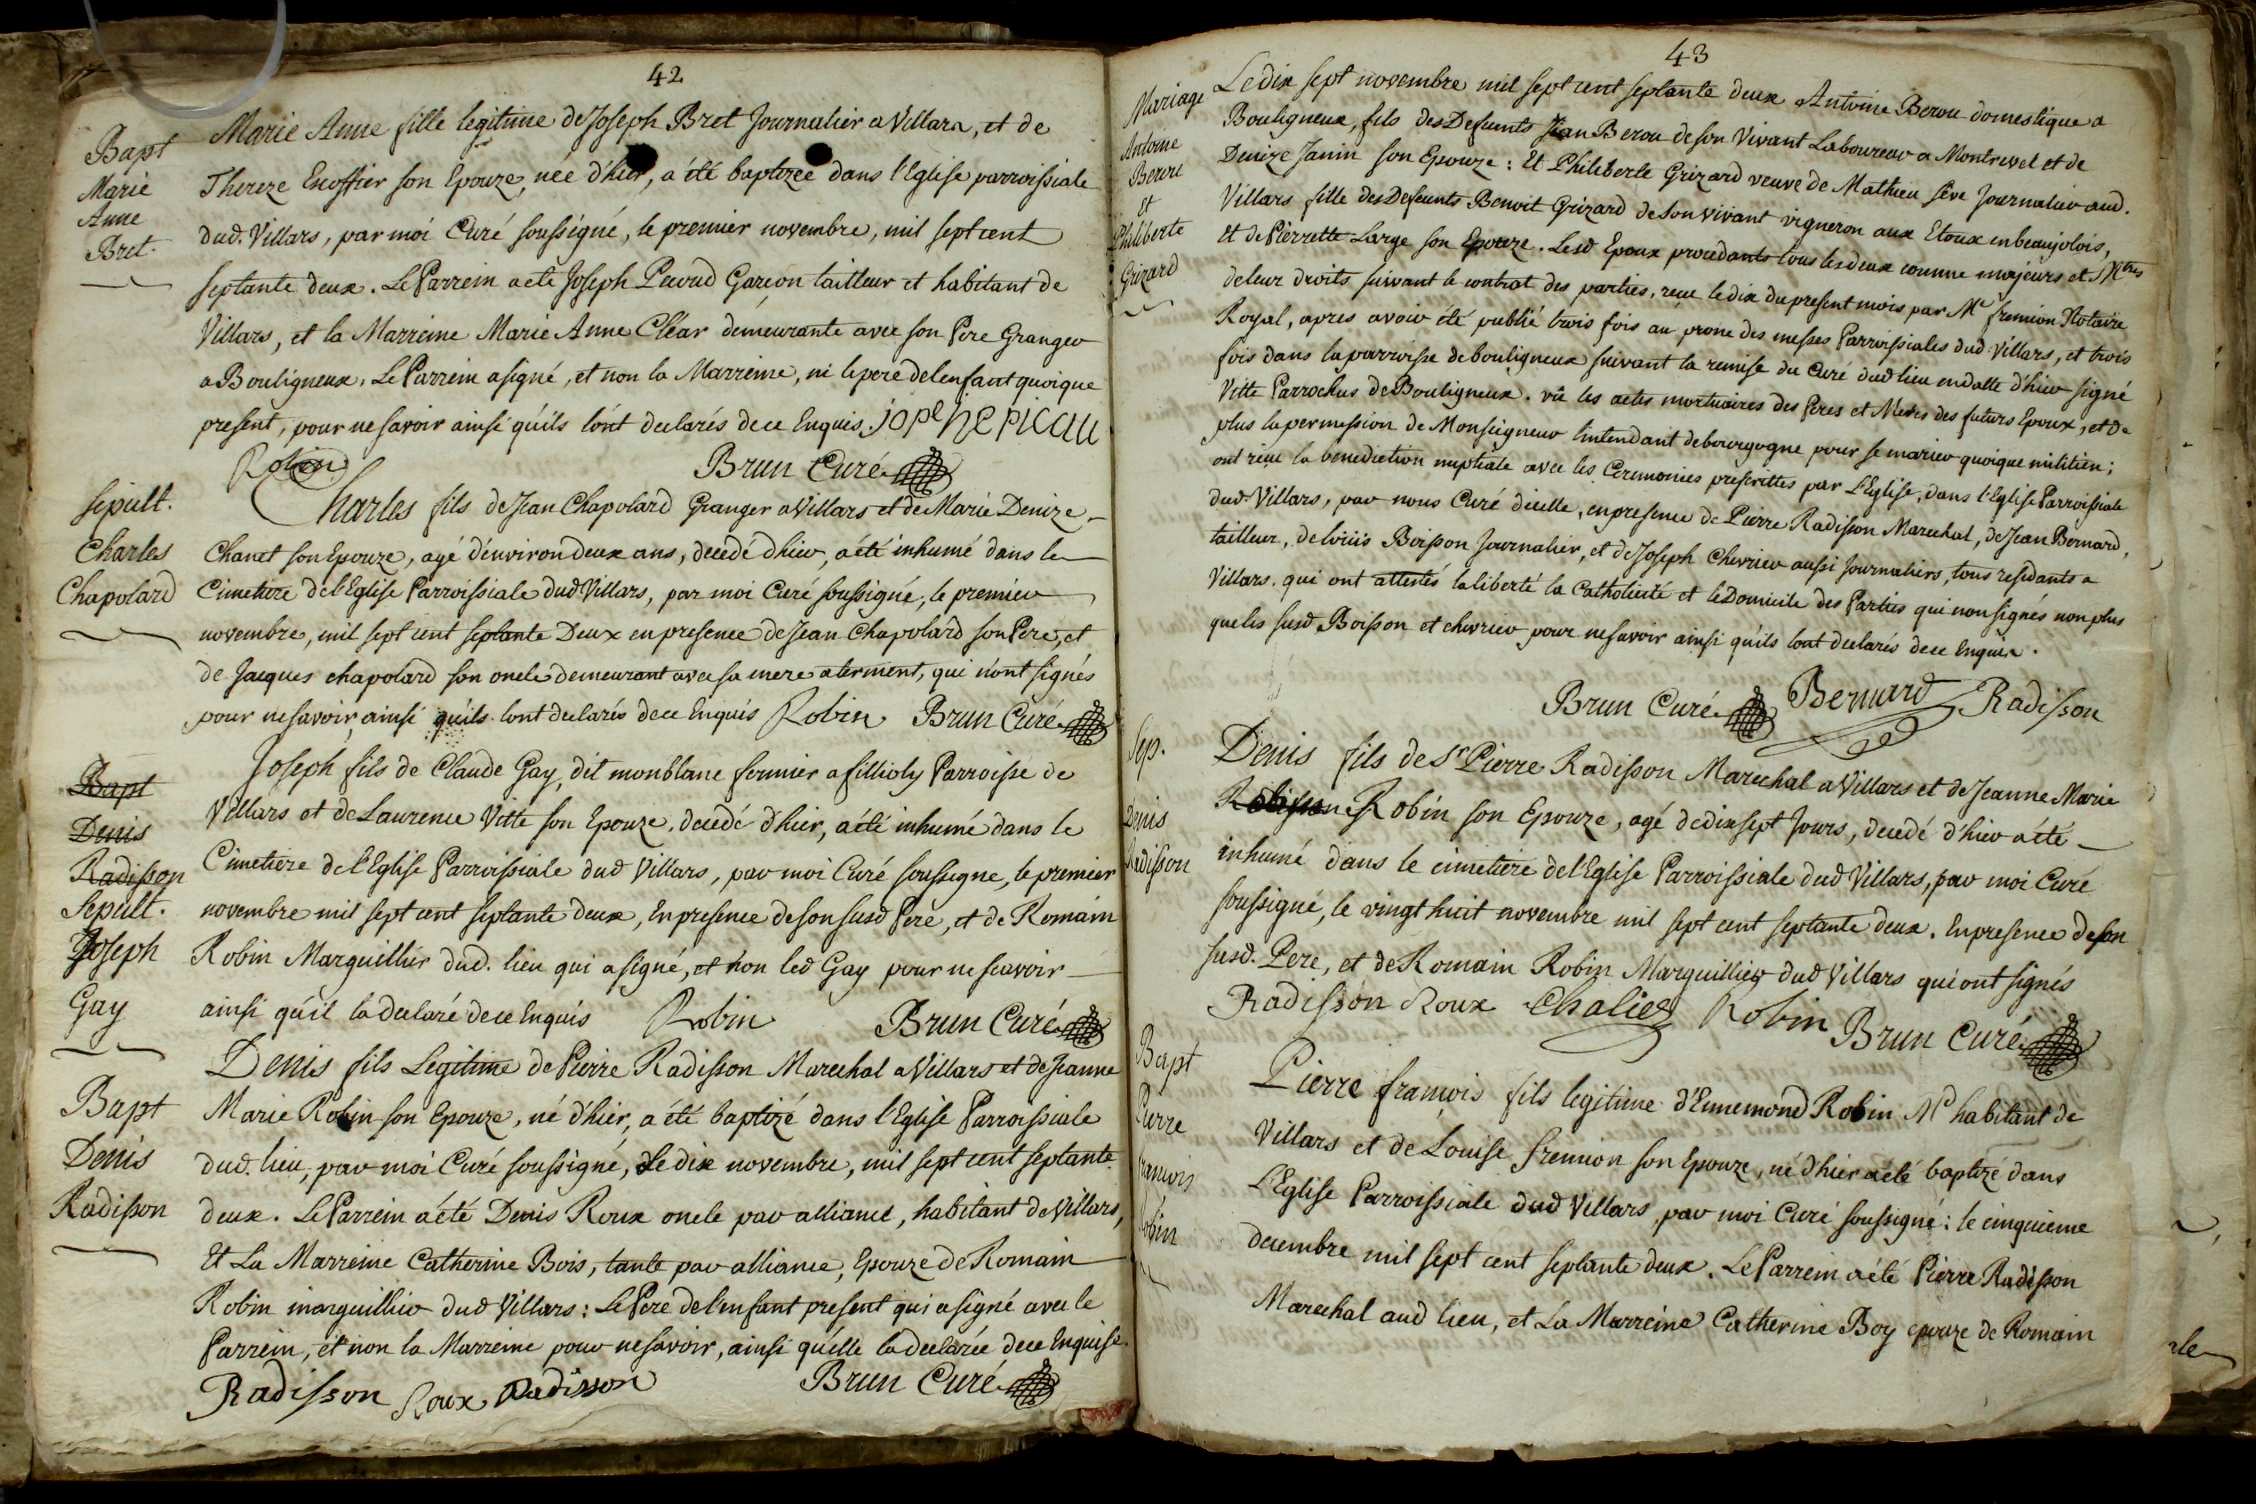 42
Bapt
Marie
Anne
Bret.
Marie Anne fille legitime de Joseph Bret Journalier a Villars, et de
Thereze Escoffier son Epouze, née d'hier, a été baptizée dans l'Eglise parroissiale
dud. Villars, par moi Curé soussigné, le premier novembre, mil sept cent
septante deux. Le Parrein a eté Joseph Picoud Garcon tailleur et habitant de
Villars, et la Marreine Marie Anne Cléar demeurante avec son Pere Granger
a Bouligneux. Le Parrein a signé, et non la Marreine, ni le pere de l'enfant quoique
present, pour ne savoir ainsi qu'ils l'ont declarés de ce Enquis. jopehe picau
Robin Brun Curé
sepult.
Charles
Chapolard
Charles fils de Jean Chapolard Granger a Villars et de Marie Denize
Chanet son Epouze, agé d'environ deux ans, decedé d'hier, a été inhumé dans le
Cimetiere de l'Eglise Parroissiale dud Villars, par moi Curé soussigné, le premier
novembre, mil sept cent septante Deux en presence de Jean Chapolard son Pere, et
de Jacques chapolard son oncle demeurant avec sa mere aterment, qui n'ont signés
pour ne savoir, ainsi qu'ils l'ont declarés de ce Enquis Robin Brun Curé
Bapt
Denis
Radisson
Sepult.
Joseph
Gay
Joseph fils de Claude Gay, dit monblanc fermier a fillioly Parroisse de
Villars et de Laurence Vitte son Epouze, decedé d'hier, a été inhumé dans le
Cimetiere de l'Eglise Parroissiale dud Villars, par moi Curé soussigne, le premier
novembre mil sept cent septante deux, En presence de son susd Pere, et de Romain
Robin Marguillier dud. lieu qui a signé, et non led Gay pour ne scavoir
ainsi qu'il la declaré de ce Enquis Robin Brun Curé
Bapt
Denis
Radisson
Denis fils Legitime de Pierre Radisson Marechal a Villars et de Jeanne
Marie Robin son Epouze, né d'hier, a été baptizé dans l'Eglise Parroissiale
dud. lieu, par moi Curé soussigné, Le dix novembre, mil sept cent septante
deux. Le Parrein a été Denis Roux oncle par alliance, habitant de Villars,
Et La Marreine Catherine Bois, tante par alliance, Epouze de Romain
Robin marguillier dud Villars: Le Pere de l'enfant present qui a signé avec le
Parrein, et non la Marreine pour ne savoir, ainsi qu'elle la declarée de ce Enquise.
Radisson Roux Radisson Brun Curé
43
Mariage
Antoine
Berou
et
Philiberte
Grizard
Le dix sept novembre mil sept cent septante deux Antoine Berou domestique a
Bouligneux, fils des Defunts Jean Berou de son Vivant Laboureur a Montrevel et de
Denize Janin son Epouze: Et Philiberte Grizard veuve de Mathieu sève Journalier aud.
Villars fille des Defunts Benoit Grizard de son vivant vigneron aux Etoux en beaujolois,
Et de Pierrette Large son Epouze. Lesd Epoux procedants tous les deux comme majeurs et Mtres
de leur droits suivant le contrat des parties, recu le dix du present mois par Me fremion Notaire
Royal, apres avoir été publié trois fois au prone des messes Parroissiales dud Villars, et trois
fois dans la parroisse de bouligneux suivant la remise du Curé dud lieu en datte d'hier signé
Vitte Parrochus de Bouligneux. vû les actes mortuaires des Peres et Meres des futurs Epoux, et de
plus la permission de Monseigneur l'intendant de bourgogne pour se marier quoique militien;
ont reçu la benediction nuptiale avec les Ceremonies prescrittes par L'Eglise, dans l'Eglise Parroissiale
dud. Villars, par nous Curé d'icelle, en presence de Pierre Radisson Marechal, de Jean Bernard,
tailleur, de loüis Boisson Journalier, et de Joseph Chevrier aussi Journaliers, tous residants a
Villars. qui ont attestés la liberté la Catholicité et le Domicile des Parties qui non signés non plus
que les susd. Boisson et chevrier pour ne savoir ainsi qu'ils l'ont declarés de ce Enquis.
Brun Curé Bernard Radisson
Sep.
Denis
Radisson
Denis fils de Sr Pierre Radisson Marechal a Villars et de Jeanne Marie
Robin son Epouze, agé de dix sept Jours, decedé d'hier a été
inhumé dans le cimetiere de l'Eglise Parroissiale dud Villars, par moi Curé
soussigné, le vingt huit novembre mil sept cent septante deux. En presence de son
susd. Pere, et de Romain Robin Marguillier dud Villars qui ont signés
Radisson Roux Chalier Robin Brun Curé
Bapt
Pierre
francois
Robin
Pierre françois fils legitime d'Ennemond Robin Md habitant de
Villars et de Louise fremion son Epouze, né d'hier a été baptizé dans
L'Eglise Parroissiale dud Villars, par moi Curé soussigné: le cinquieme
decembre mil sept cent septante deux. Le Parrein a été Pierre Radisson
Marechal aud lieu, et La Marreine Catherine Boy epouze de Romain